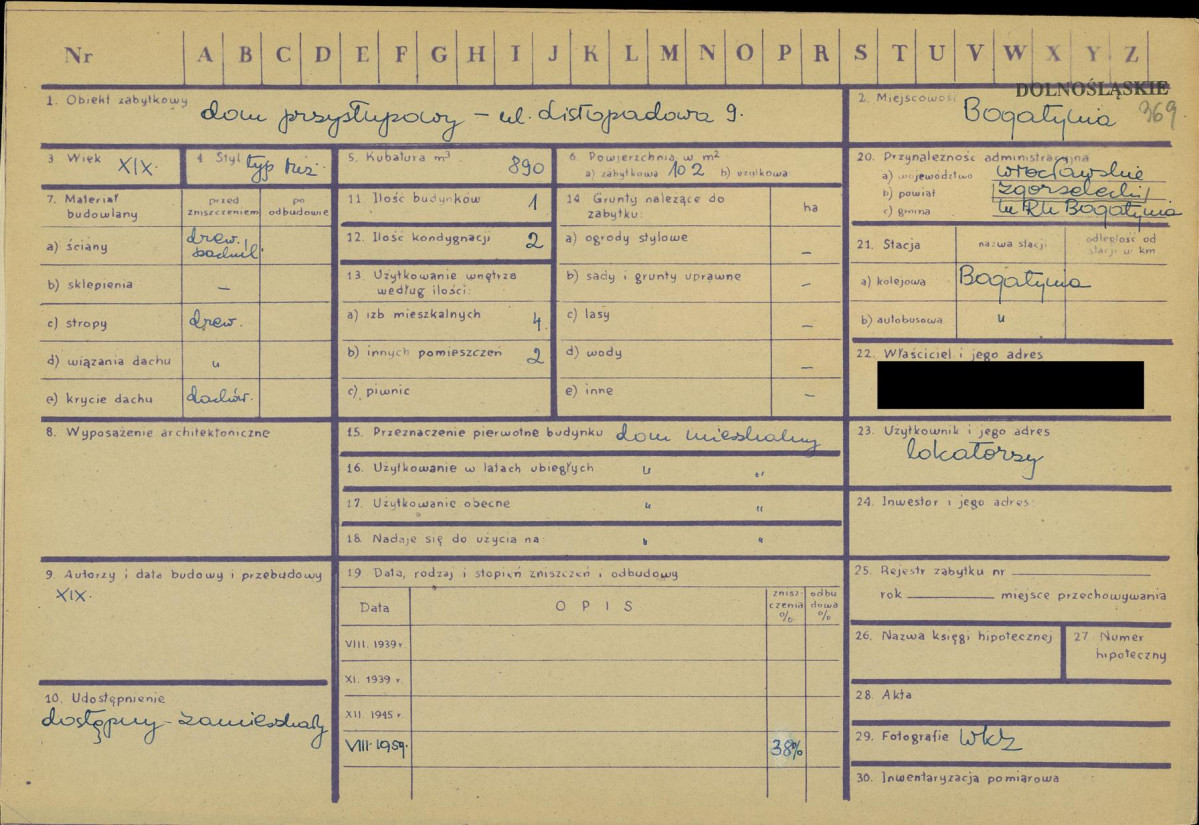 Nr A B C D E F G H I J K L M N O P R S T U V W X Y Z
DOLNOŚLĄSKIE
369
1. Obiekt zabytkowy dom przysłupowy – ul. Listopadowa 9.
2. Miejscowość Bogatynia
3 Wiek XIX.
4 Styl typ łuż.
5. Kubatura m³ 890
6. Powierzchnia w m²
a) zabytkowa 102 b) użytkowa
20. Przynależność administracyjna
a) województwo wrocławskie
b) powiat zgorzelecki
c) gmina Bogatynia
7. Materiał budowlany
przed zniszczeniem
po odbudowie
a) ściany drew.,
b) sklepienia –
c) stropy drew.
d) wiązania dachu "
e) krycie dachu dachów.
11. Ilość budynków 1
12. Ilość kondygnacji 2
13. Użytkowanie wnętrza
według ilości:
a) izb mieszkalnych 4
b) innych pomieszczeń 2
c) piwnic
14 Grunty należące do
zabytku:
ha
a) ogrody stylowe –
b) sady i grunty uprawne –
c) lasy –
d) wody –
e) inne –
21. Stacja
nazwa stacji
odległość od
stacji w km
a) kolejowa Bogatynia
b) autobusowa "
22. Właściciel i jego adres
8. Wyposażenie architektoniczne
15. Przeznaczenie pierwotne budynku dom mieszkalny
16. Użytkowanie w latach ubiegłych " "
17. Użytkowanie obecne " "
18. Nadaje się do użycia na: " "
23. Użytkownik i jego adres
lokatorzy
24. Inwestor i jego adres:
9. Autorzy i data budowy i przebudowy
XIX.
19 Data, rodzaj i stopień zniszczeń i odbudowy
Data
OPIS
znisz-
czenia
%
odbu
dowa
%
VIII. 1939 r.
XI. 1939 r.
XII. 1945 r.
VIII. 1959. 38%
25. Rejestr zabytku nr
rok miejsce przechowywania
26. Nazwa księgi hipotecznej
27. Numer
hipoteczny
10. Udostępnienie
dostępny – zamieszkały
28. Akta
29. Fotografie WKZ
30. Inwentaryzacja pomiarowa